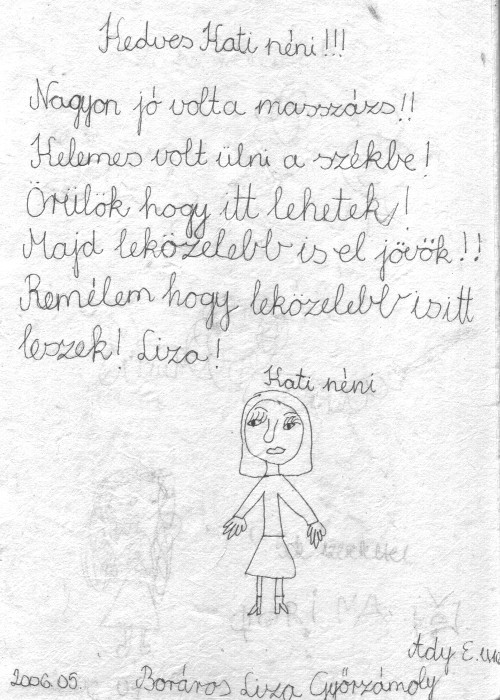 Kedves Kati néni!!!
Nagyon jó volta masszázs!!
Kelemes volt ülni a székbe!
Örülök hogy itt lehetek!
Majd leközelebb is el jövök!!
Remélem hogy leközelebb isitt
leszek! Liza!
Kati néni
Ady E.
2006.05. Boráros Liza Győrzámoly